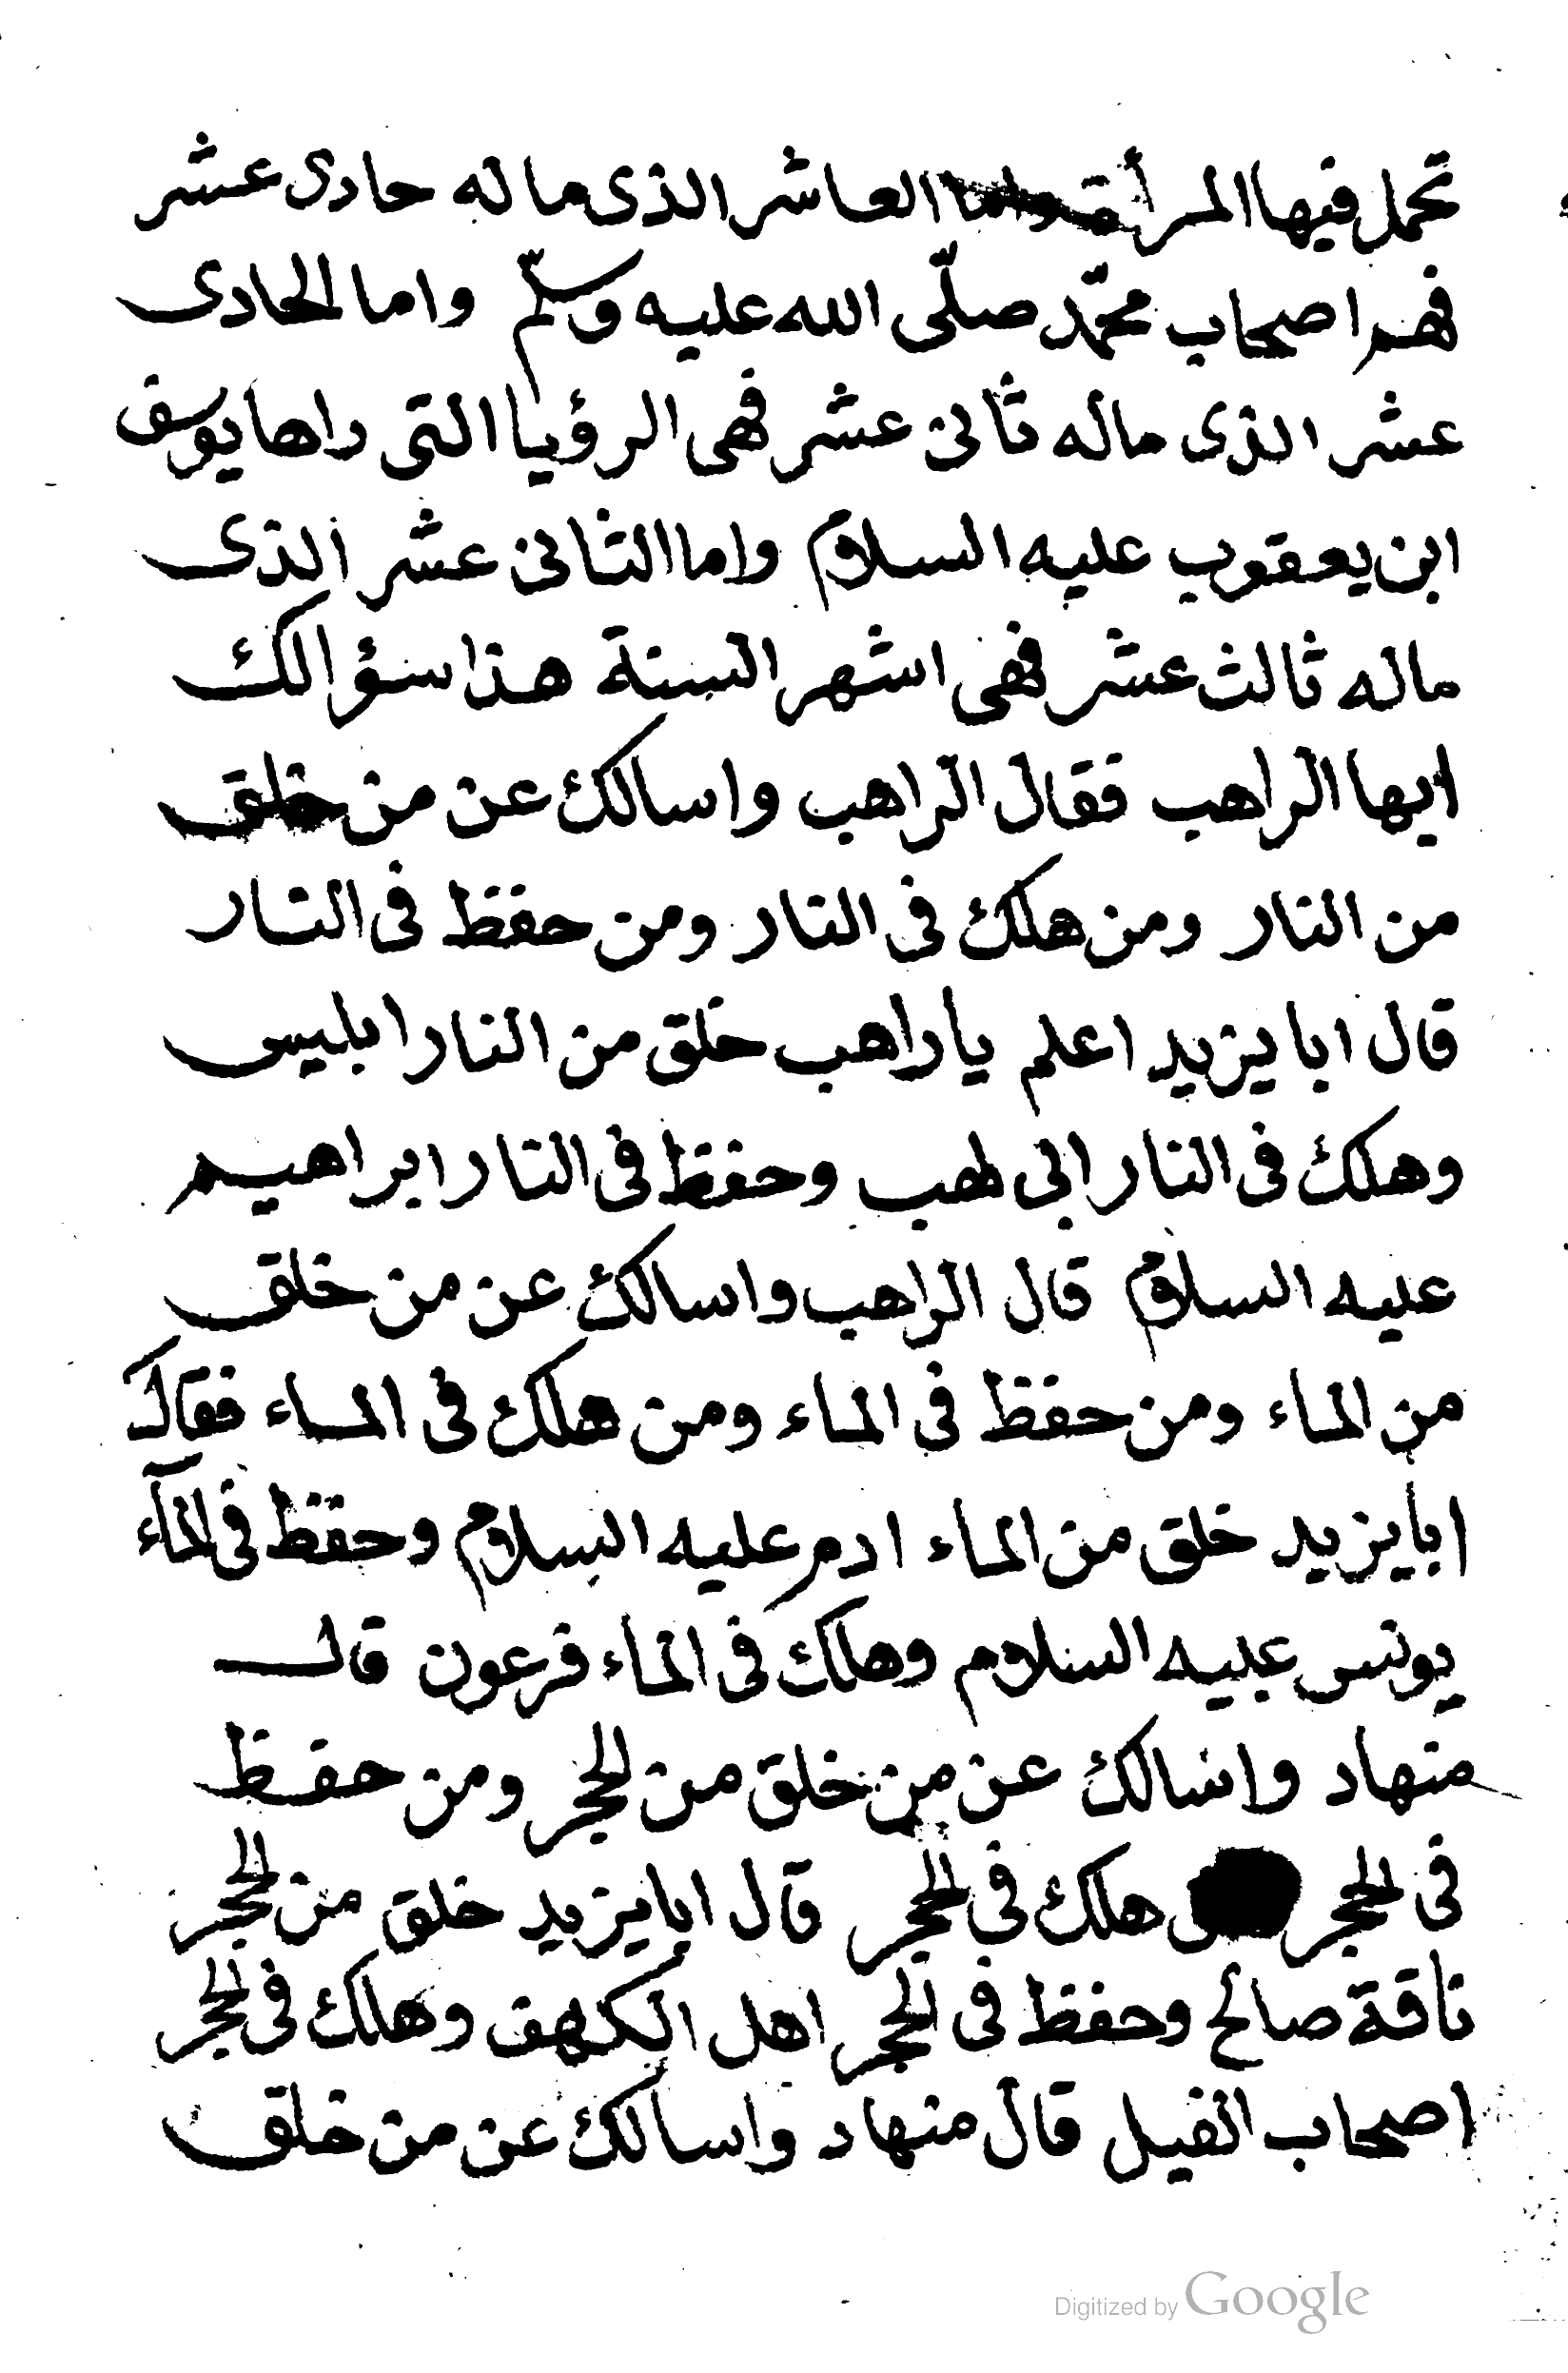 تحمل فيها المرأة واما العاشر الذى ماله حادى عشر
فهم اصحاب محمّد صلّى الله عليه وسلّم واما الحادى
عشر الذى ماله ثانى عشر فهى الرؤيا التى راها يوسف
ابن يعقوب عليه السلام واما الثانى عشر الذى
ماله ثالث عشر فهى اشهر السنة هذا سؤالك
ايها الراهب فقال الراهب واسالك عن من خلق
من النار ومن هلك فى النار ومن حفظ فى النار
قال ابا يزيد اعلم يا راهب خلق من النار ابليس
وهلك فى النار ابى لهب وحفظ فى النار ابراهيم
عليه السلام قال الراهب واسالك عن من خلق
من الماء ومن حفظ فى الماء ومن هلك فى الماء فقال
ابا يزيد خلق من الماء ادم عليه السلام وحفظ فى المآء
يونس عليه السلام وهلك فى الماء فرعون قال
منهاد واسالك عن من خلق من الحجر ومن حفظ
فى الحجر هلك فى الحجر قال ابا يزيد خلق من الحجر
ناقة صالح وحفظ فى الحجر اهل الكهف وهلك فى الحجر
اصحاب الفيل قال منهاد واسالك عن من خلق
Digitized by Google